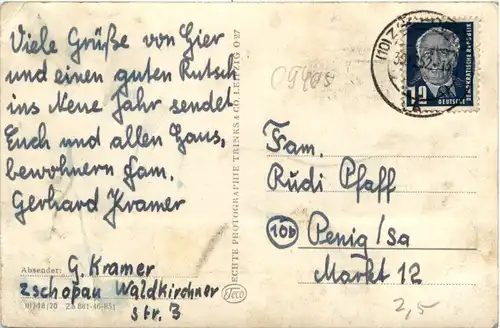 Viele Grüße von hier
und einen guten Rutsch
ins Neue Jahr sendet
Euch und allen Haus,
bewohnern Fam.
Gerhard Kramer
Absender: G. Kramer
Zschopau Waldkirchner
str. 3
ECHTE PHOTOGRAPHIE TRINKS & CO. LEIPZIG O 27
Teco
09405
(10)
12
DEUTSCHE
DEMOKRATISCHE REPUBLIK
Fam.
Rudi Pfaff
10b Penig/Sa
Markt 12
2,5